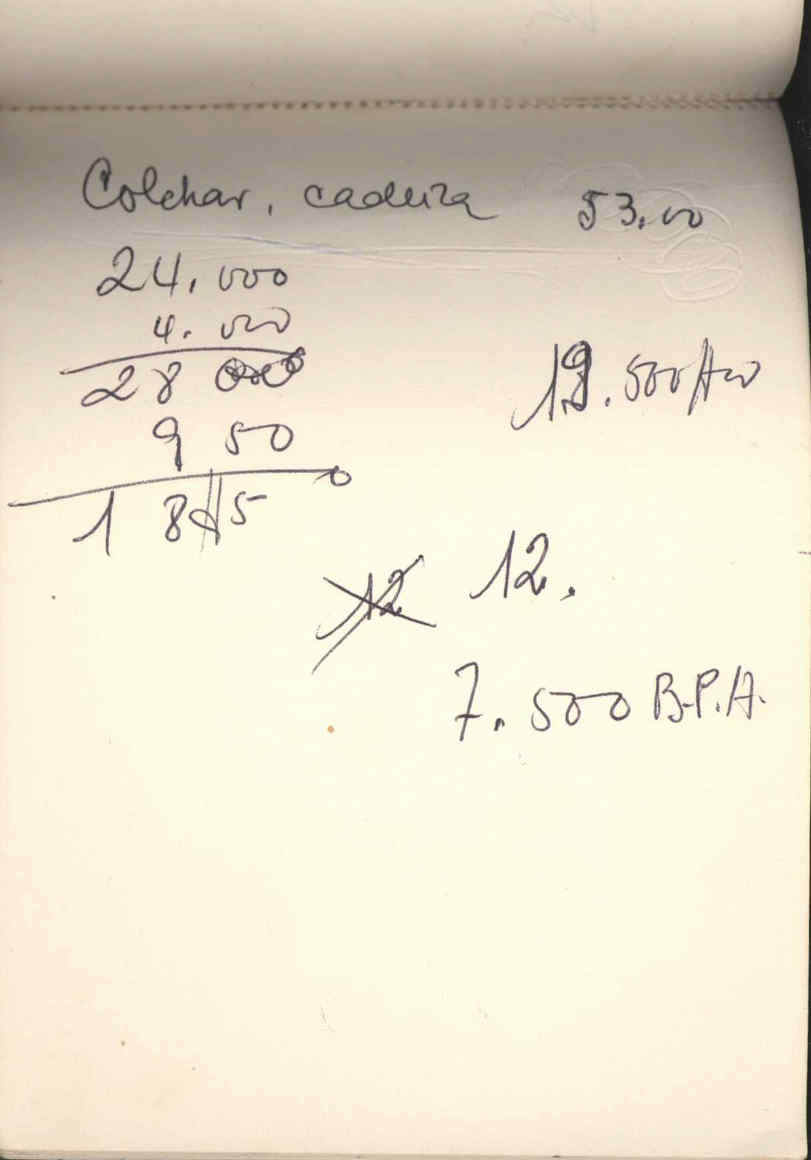 Colchar, cadeira 53.00
24.000
4.000
28 000
9 50
18 5
12.500
12 12.
7.500 B.P.A.